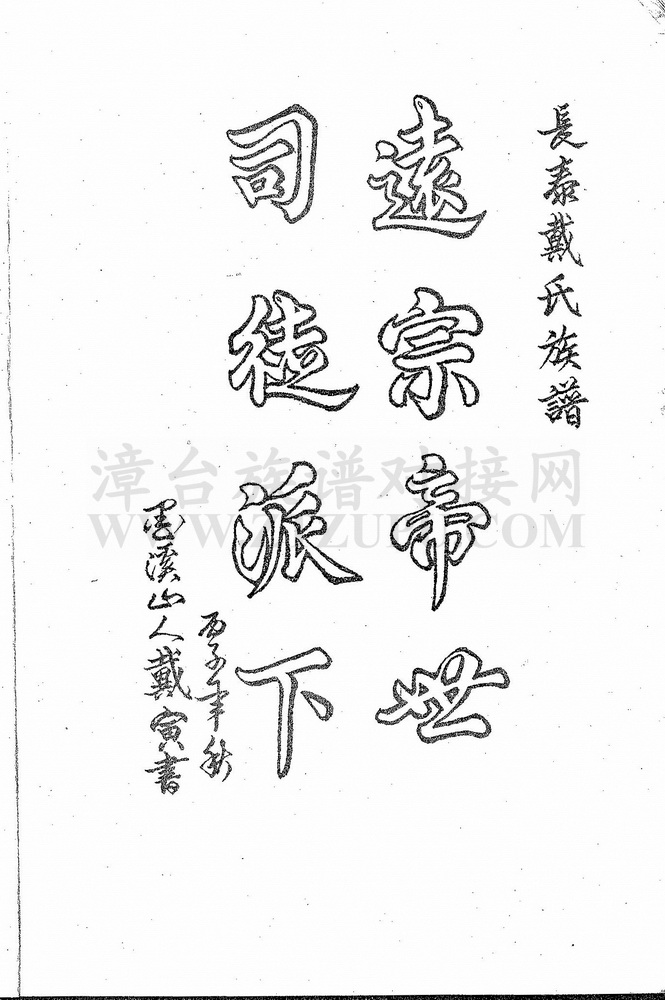 長泰戴氏族譜
遠宗帝世
司徒派下
丙子年秋
墨溪山人戴寅書
漳台族谱对接网